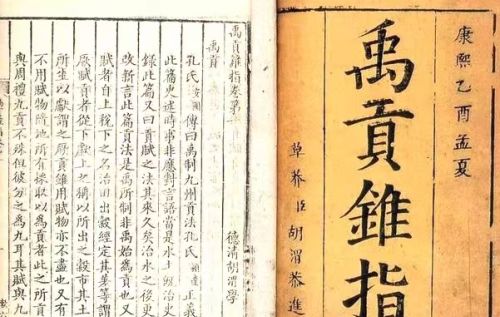 康熙乙酉孟夏
禹貢錐指
草莽臣胡渭恭進
禹貢錐指卷第
德清胡渭學
禹貢
孔氏安國傳曰禹制九州貢法孔氏穎達正義
此篇史述時事非應對言語當是水土既治史
録此篇又曰貢賦之法其來久矣治水之後更
改新言此篇貢法是禹所制非禹始為貢也又
賦者自上稅下之名治田出穀經定其差等謂
厥賦貢者從下獻上之稱以所出之穀市其土
所生以獻謂之厥貢雖用賦物亦不盡也又有
不用賦物隨地所有採取以為貢者此之所貢
與周禮九貢不殊但彼分之為九耳其賦與九